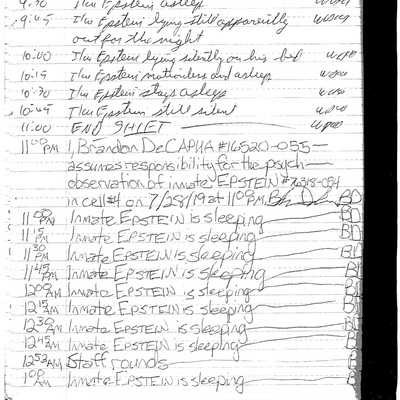 9:30 I/m Epstein asleep
9:45 I/m Epstein lying still apparently
out for the night
10:00 I/m Epstein lying silently on his bed
10:15 I/m Epstein motionless and asleep
10:30 I/m Epstein stays asleep
10:45 I/m Epstein still silent
11:00 END SHIFT
11:00 PM I, Brandon DeCAPUA #16520-055
assumes responsibility for the psych
observation of inmate EPSTEIN #76318-054
in cell #4 on 7/28/19 at 11:00 PM BD
11:00 PM Inmate EPSTEIN is sleeping BD
11:15 PM Inmate EPSTEIN is sleeping BD
11:30 PM Inmate EPSTEIN is sleeping BD
11:45 PM Inmate EPSTEIN is sleeping BD
12:00 AM Inmate EPSTEIN is sleeping BD
12:15 AM Inmate EPSTEIN is sleeping BD
12:30 AM Inmate EPSTEIN is sleeping B
12:45 AM Inmate EPSTEIN is sleeping B
12:52 AM Staff rounds B
1:00 AM Inmate EPSTEIN is sleeping B